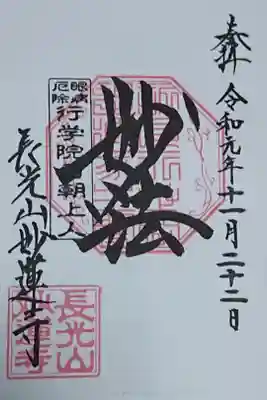 奉拝 令和元年十一月二十二日
妙法
眼病
厄除
行学院日朝上人
長光山妙蓮寺
長光山
妙蓮寺